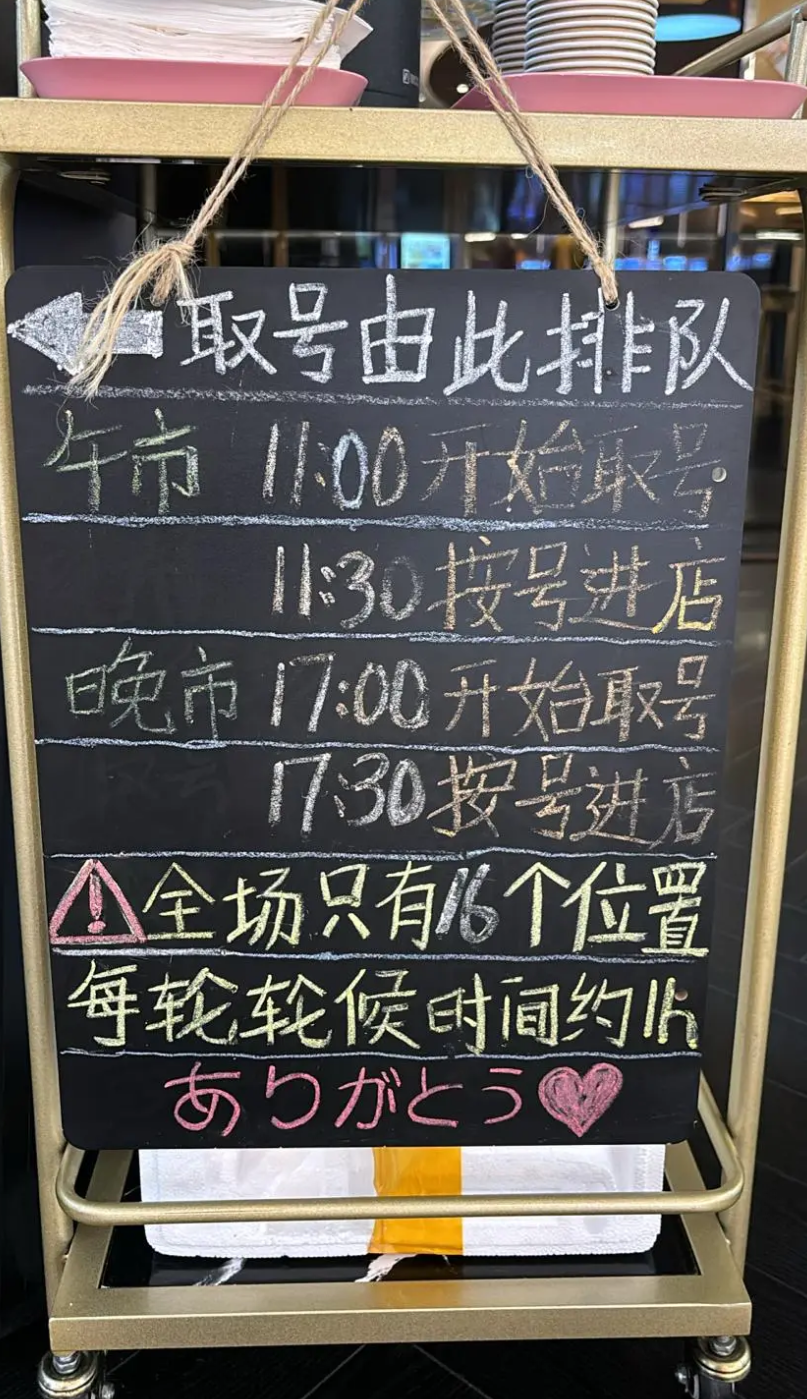 取号由此排队
午市 11:00 开始取号
11:30 按号进店
晚市 17:00 开始取号
17:30 按号进店
全场只有16个位置
每轮轮候时间约1h
ありがとう